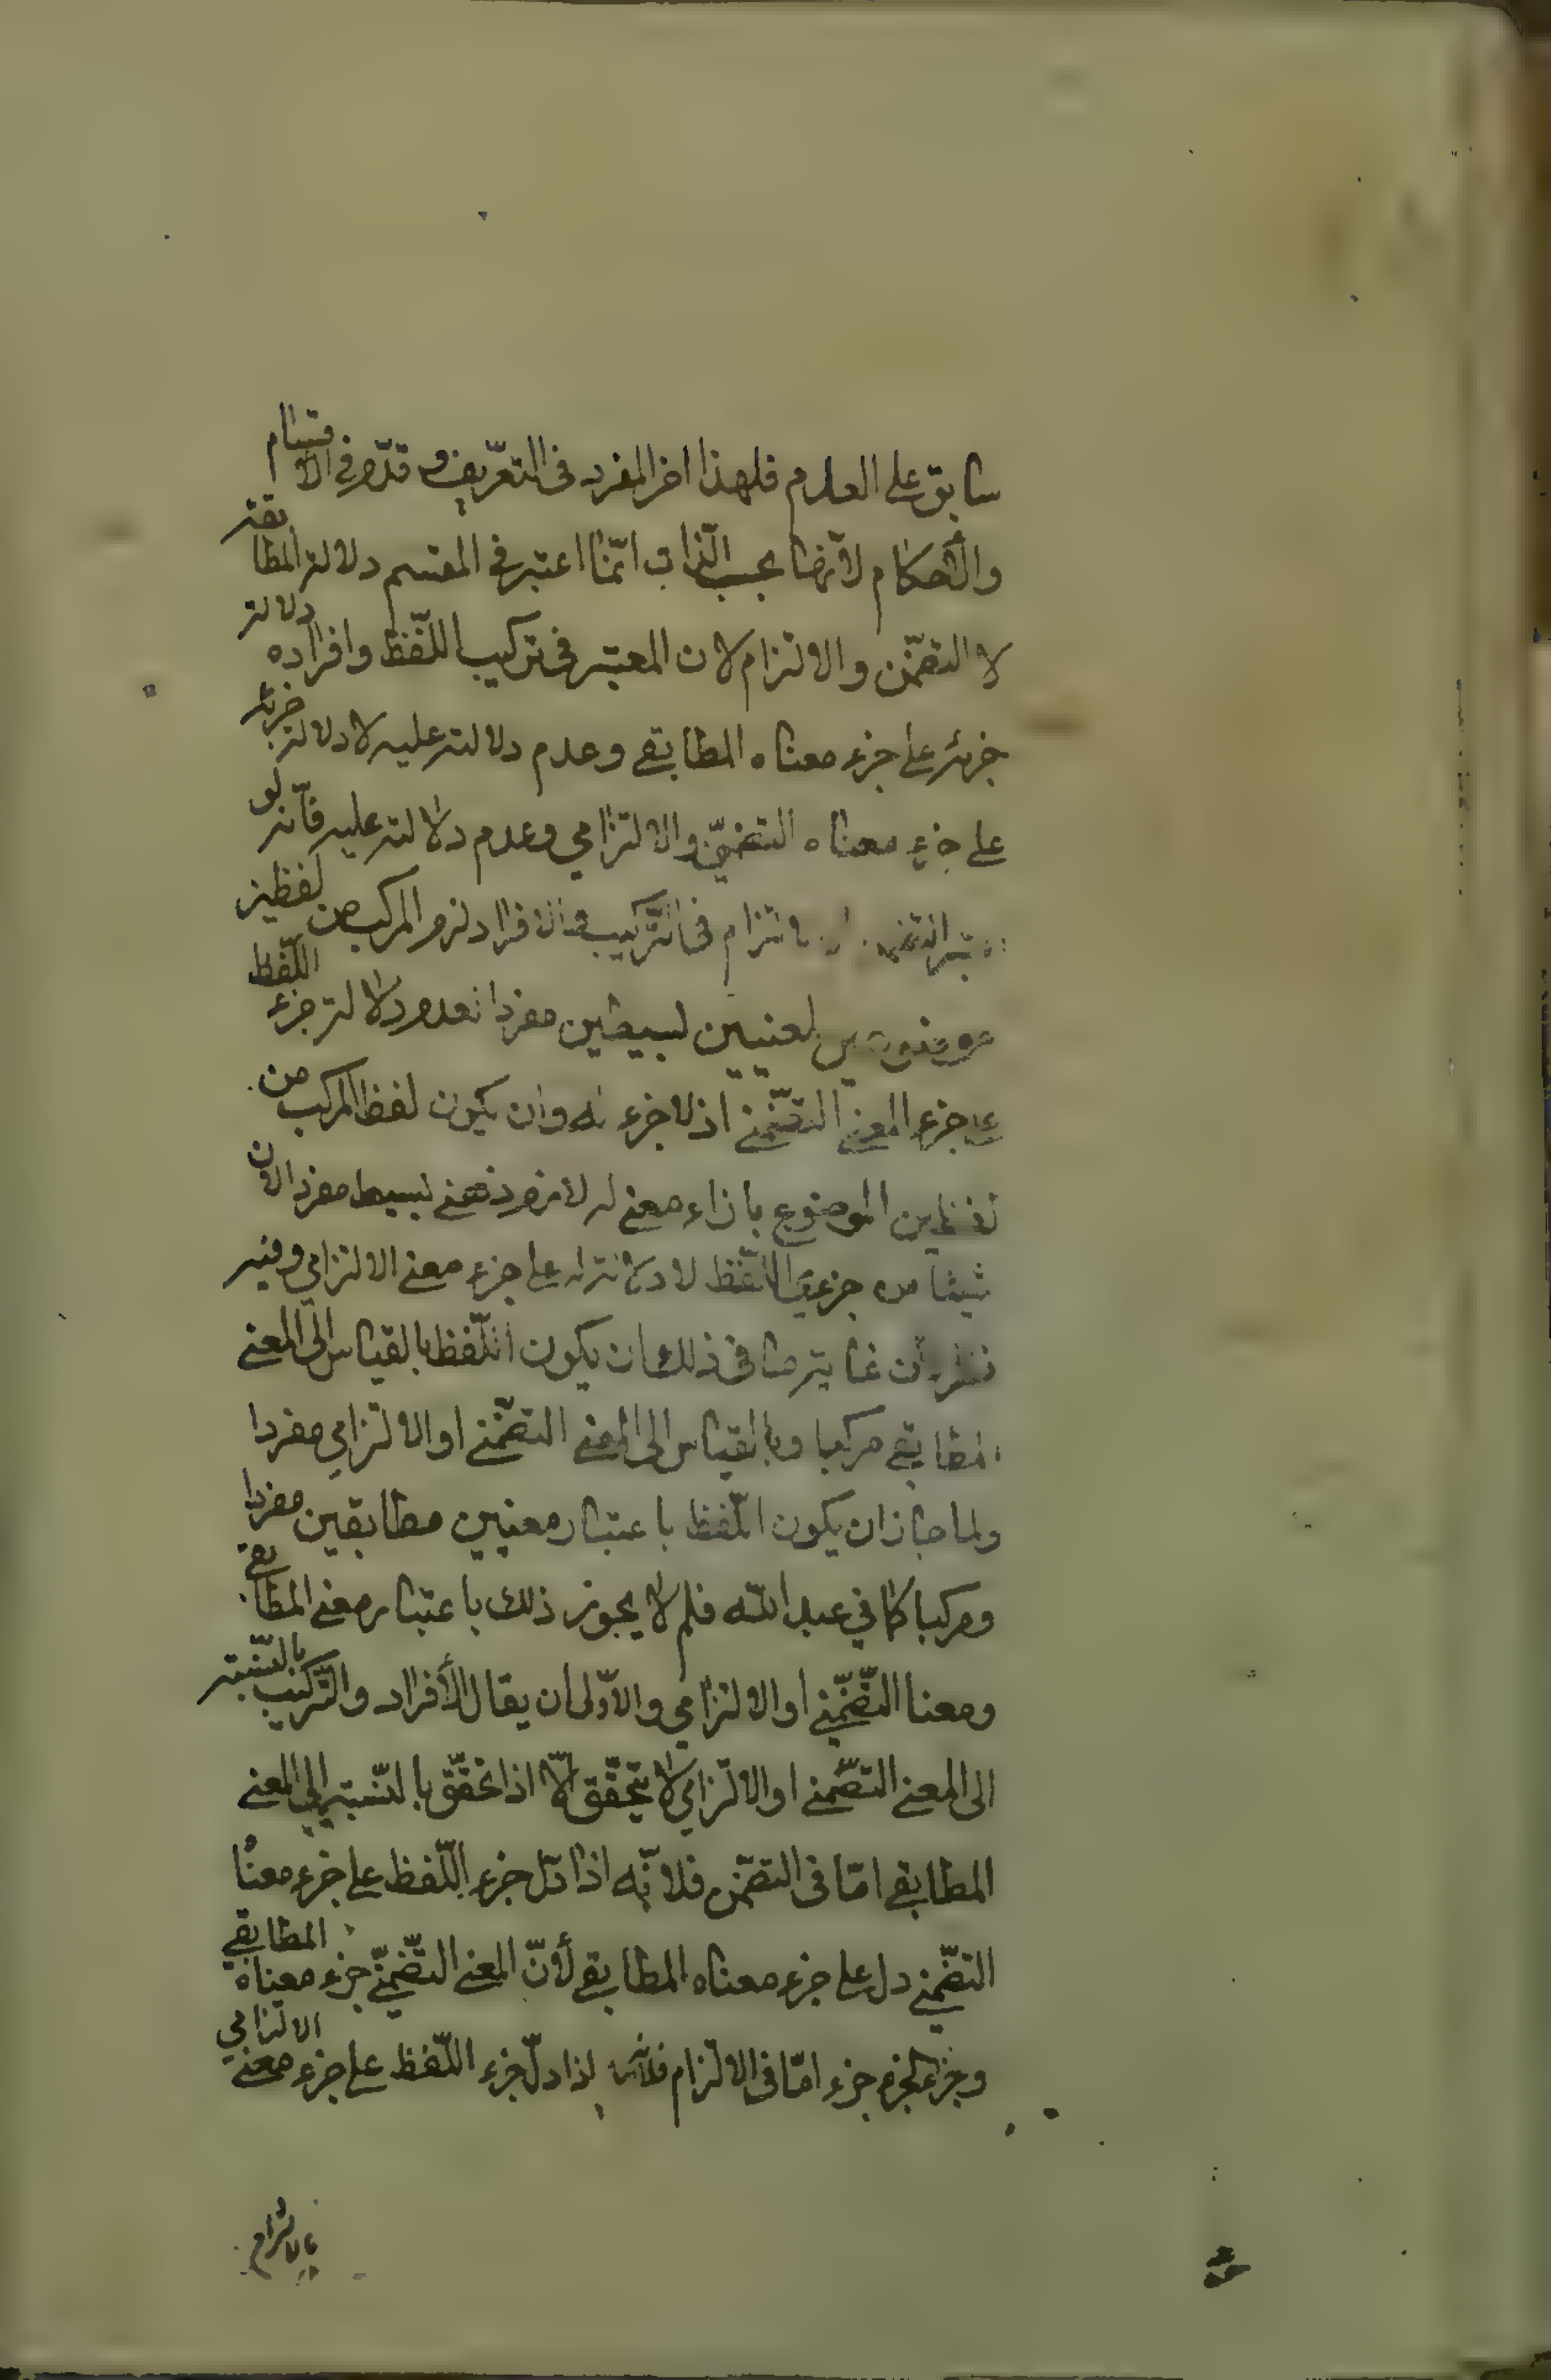 سابق على العدم فلهذا اخر المفرد فى التعريف و قدّمه فى الاقسام
والأحكام لانّها بحسب الذات انّما اعتبر فى المقسم دلالة المطابقة
لا التضمّن والالتزام لان المعتبر فى تركيب اللّفظ وافراده دلالة
جزئه على جزء معناه المطابقى وعدم دلالته عليه لا دلالة جزئه
على جزء معناه التضمّنى والالتزامي وعدم دلالته عليه فانّه لو
التزام فى التّركيب والافراد لزم المركب من لفظين
لمعنيين بسيطين مفردا لعدم دلالة جزء اللّفظ
على جزء المعنى التضّمنى اذ لا جزء له وان يكون لفظ المركب من
لفظين الموضوع بازاء معنى له لازم ذهنى بسيط مفردا لان
شيئا من جزئى اللّفظ لا دلالة له على جزء معنى الالتزامي وفيه
نظر لان غاية ما فى ذلك ان يكون اللّفظ بالقياس الى المعنى
المطابقى مركبا وبالقياس الى المعنى التضمّنى او الالتزامي مفردا
ولما جاز ان يكون اللّفظ باعتبار معنيين مطابقين مفردا
ومركبا كما في عبد اللّه فلم لا يجوز ذلك باعتبار معنى المطابقى
ومعنا التضّمّنى او الالتزامي والاوّلى ان يقال الأفراد والتّركيب بالنّسبة
الى المعنى التضّمنى او الالتزامي لا يتحقّق الّا اذا تحقّق بالنّسبة الى المعنى
المطابقى امّا فى التضمّن فلانّه اذا دلّ جزء اللّفظ على جزء معناه
التضّمنى دل على جزء معناه المطابقى لأنّ المعنى التضّمنّى جزء معناه المطابقى
وجزء الجزء جزء امّا فى الالتزام فلانّه اذا دلّ جزء اللّفظ على جزء معنى الالتزامى
بالالتزام